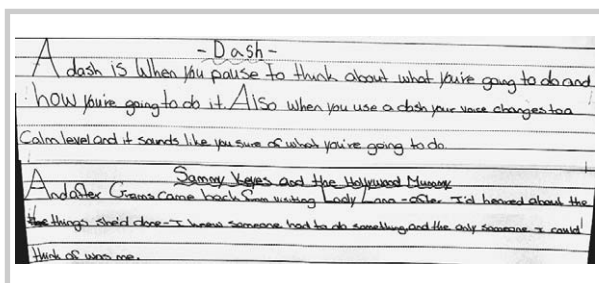 - Dash -
A dash is When you pause to think about what you're going to do and
how you're going to do it. Also when you use a dash your voice changes to a
Calm level and it sounds like you sure of what you're going to do.
Sammy Keyes and the Hollywood Mummy
And after Grams came back from visiting Lady Lana - after I'd heared about the
things she'd done - I knew someone had to do something, and the only someone I could
think of was me.